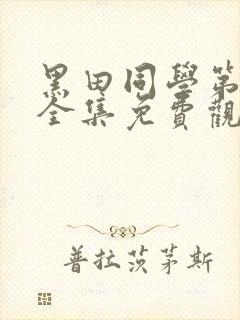 黑田同學第
全集免費觀
普拉茨茅斯